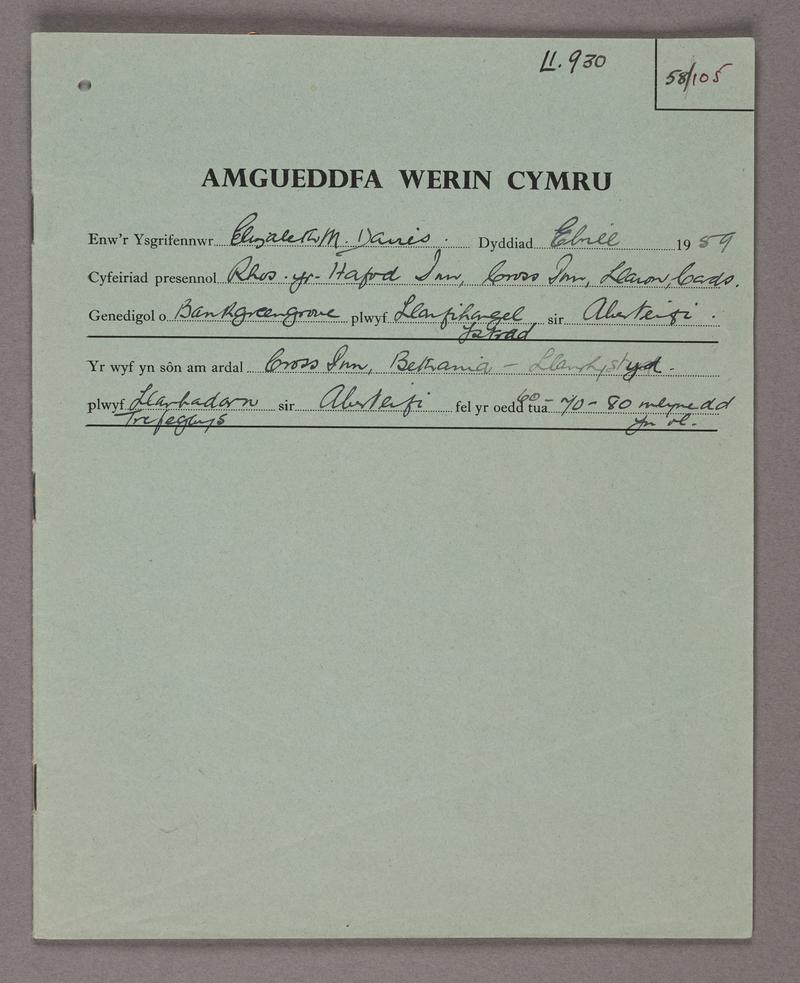 Ll. 930
58/105
AMGUEDDFA WERIN CYMRU
Enw'r Ysgrifennwr Elizabeth M. Davies. Dyddiad Ebrill 1959
Cyfeiriad presennol Rhos-yr-Hafod Inn, Cross Inn, Llanon, Cards.
Genedigol o Bankgreengrove plwyf Llanfihangel Ystrad sir Aberteifi.
Yr wyf yn sôn am ardal Cross Inn, Bethania - Llanrhystyd.
plwyf Llanbadarn Trefeglwys sir Aberteifi fel yr oedd tua 60-70-80 mlynedd yn ol.